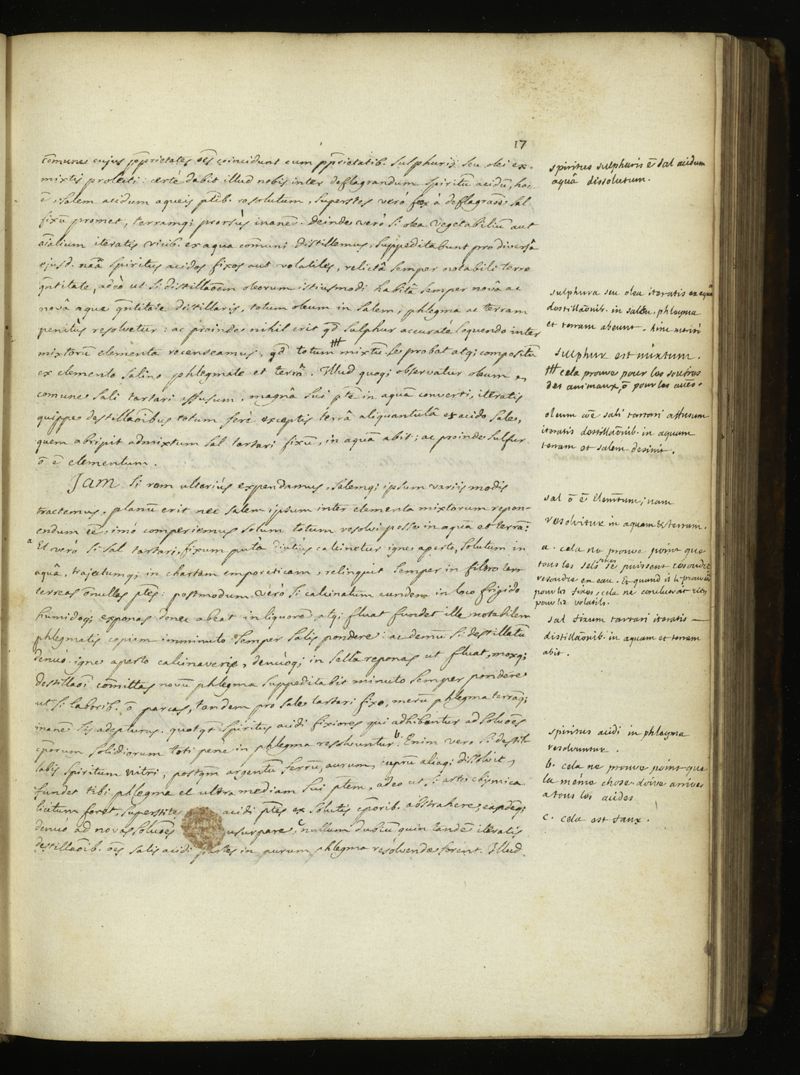 17
comune cujus pprietates oēs coincidunt cum pprietatib. sulphuris seu olei ex
mixtis proliciti: certè dabit illud nobis inter deflagrandum spiritū acidū, hoc
ē, salem acidum aqueis ptib. resolutum, superstes verò fex à deflagraōe sal
fixū promet, terramq; prorsùs inanē. Deinde verò si olea vegetabiliū aut
aīalium iteratis vicib. ex aqua comuni distillemus, suppeditabunt pro diversa
ejusd. naā spiritus acidos fixos aut volatiles, relictâ semper notabile terre
qntitate, adeò ut si distillaōem oleorum istiusmodi habitâ semper novâ ac
novâ aque qntitate distillaris, totum oleum in salem, phlegma ac terram
penitùs resolvetur: ac proinde nihil erit qd sulphur accurate loquendo inter
mixtorū elementa recenseamus, qd totum mixtū se probat atq; compositū
ex elemento salino phlegmate et terrâ. Illud quoq; observatur oleum
comune sali tartari affusum, magnâ sui pte in aquā converti, iteratis
quippe destillaōibus totum, ferè exceptis terrâ aliquantulâ et acido sale,
quem abripit admixtum sal tartari fixū, in aquā abit: ac proinde sulfur
ō ē elementum.
Jam si rem ulterius expendamus, salemq; ipsum variis modis
tractemus, planū erit nec salem ipsum inter elementa mixtorum repon-
endum eē, imò comperiemus solum totum resolvi posse in aquā et terrā:
a Et verò si sal tartari, fixum puta diutius calcinetur igne aperto, solutum in
aquâ, trajectumq; in chartam emporeticam, relinquit semper in filtro ter-
terreas ōnullas ptes: postmodum verò si calcinatum eundem in loco frigido
humidoq; exponas donec abeat in liquorē, atq; fluat fundet ille notabilem
phlegmatis copiam imminuto semper salis pondere: ac demū si destillatū
denuò igne aperto calcinaveris, denuòq; in cella reponas ut fluat, moxq;
destillaōi comittas novū phlegma suppeditabit minuto semper pondere
ut si laborib. ō parcas, tandem pro sale tartari fixo, merū phlegma terrāq;
inanē sis adepturus. quotqt spiritus acidi fixiores qui adhibentur ad soluōes
cporum solidiorum toti pene in phlegma resolvuntur b. Enim vero si destil-
labis spiritum nitri, postqm argentū ferrū, aurum, cuprū aliaq; dissolvit,
fundet tibi phlegma et ultra mediam sui ptem, adeo ut si artis chymica
licitum foret, superstite acidi ptes ex solutis cporib. abstrahere, easdeq;
denuo ad novas soluōes usurpare, c nullum dubiū quin tandē iteratis
destillaōib. oēs salis acidi partes in purum phlegma resolvendæ forent. Illud
spiritus sulphuris ē sal acidum
aquâ dissolutum.
sulphura seu olea iteratis ex aquâ
destillaōnib. in salem, phlegma
et terram abeunt. hinc neutri
sulphur est mixtum.
# cela prouve pour les soufres
des animaux, ō pour les autres.
oleum cōe sali tartari affusum
iteratis destillaōnib. in aquam
terram et salem desinit.
sal ō ē Elemtum; nam
resolvitur in aquam & terram.
a. cela ne prouve point que
tous les sels se puissent résoudre
resoudre en eau. & quand il le prouveroit
pour les fixes, cela ne concluroit rien
pour les volatils.
sal fixum tartari iteratis
distillaōnib. in aquam et terram
abit.
spiritus acidi in phlegma
resolvuntur.
b. cela ne prouve point que
la même chose doive arriver
à tous les acides
c. cela est faux.